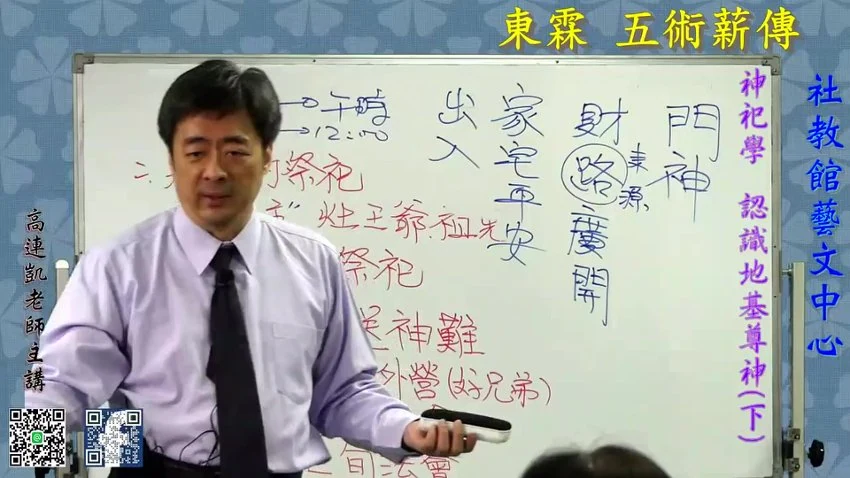 東霖 五術薪傳
社教館藝文中心
神祀學 認識地基尊神(下)
高連凱老師主講
門神
財路廣開
東源
家宅平安
出入
午時
12:00
祭祀
灶王爺.祖先
祭祀
送神難
外營(好兄弟)
旬法會